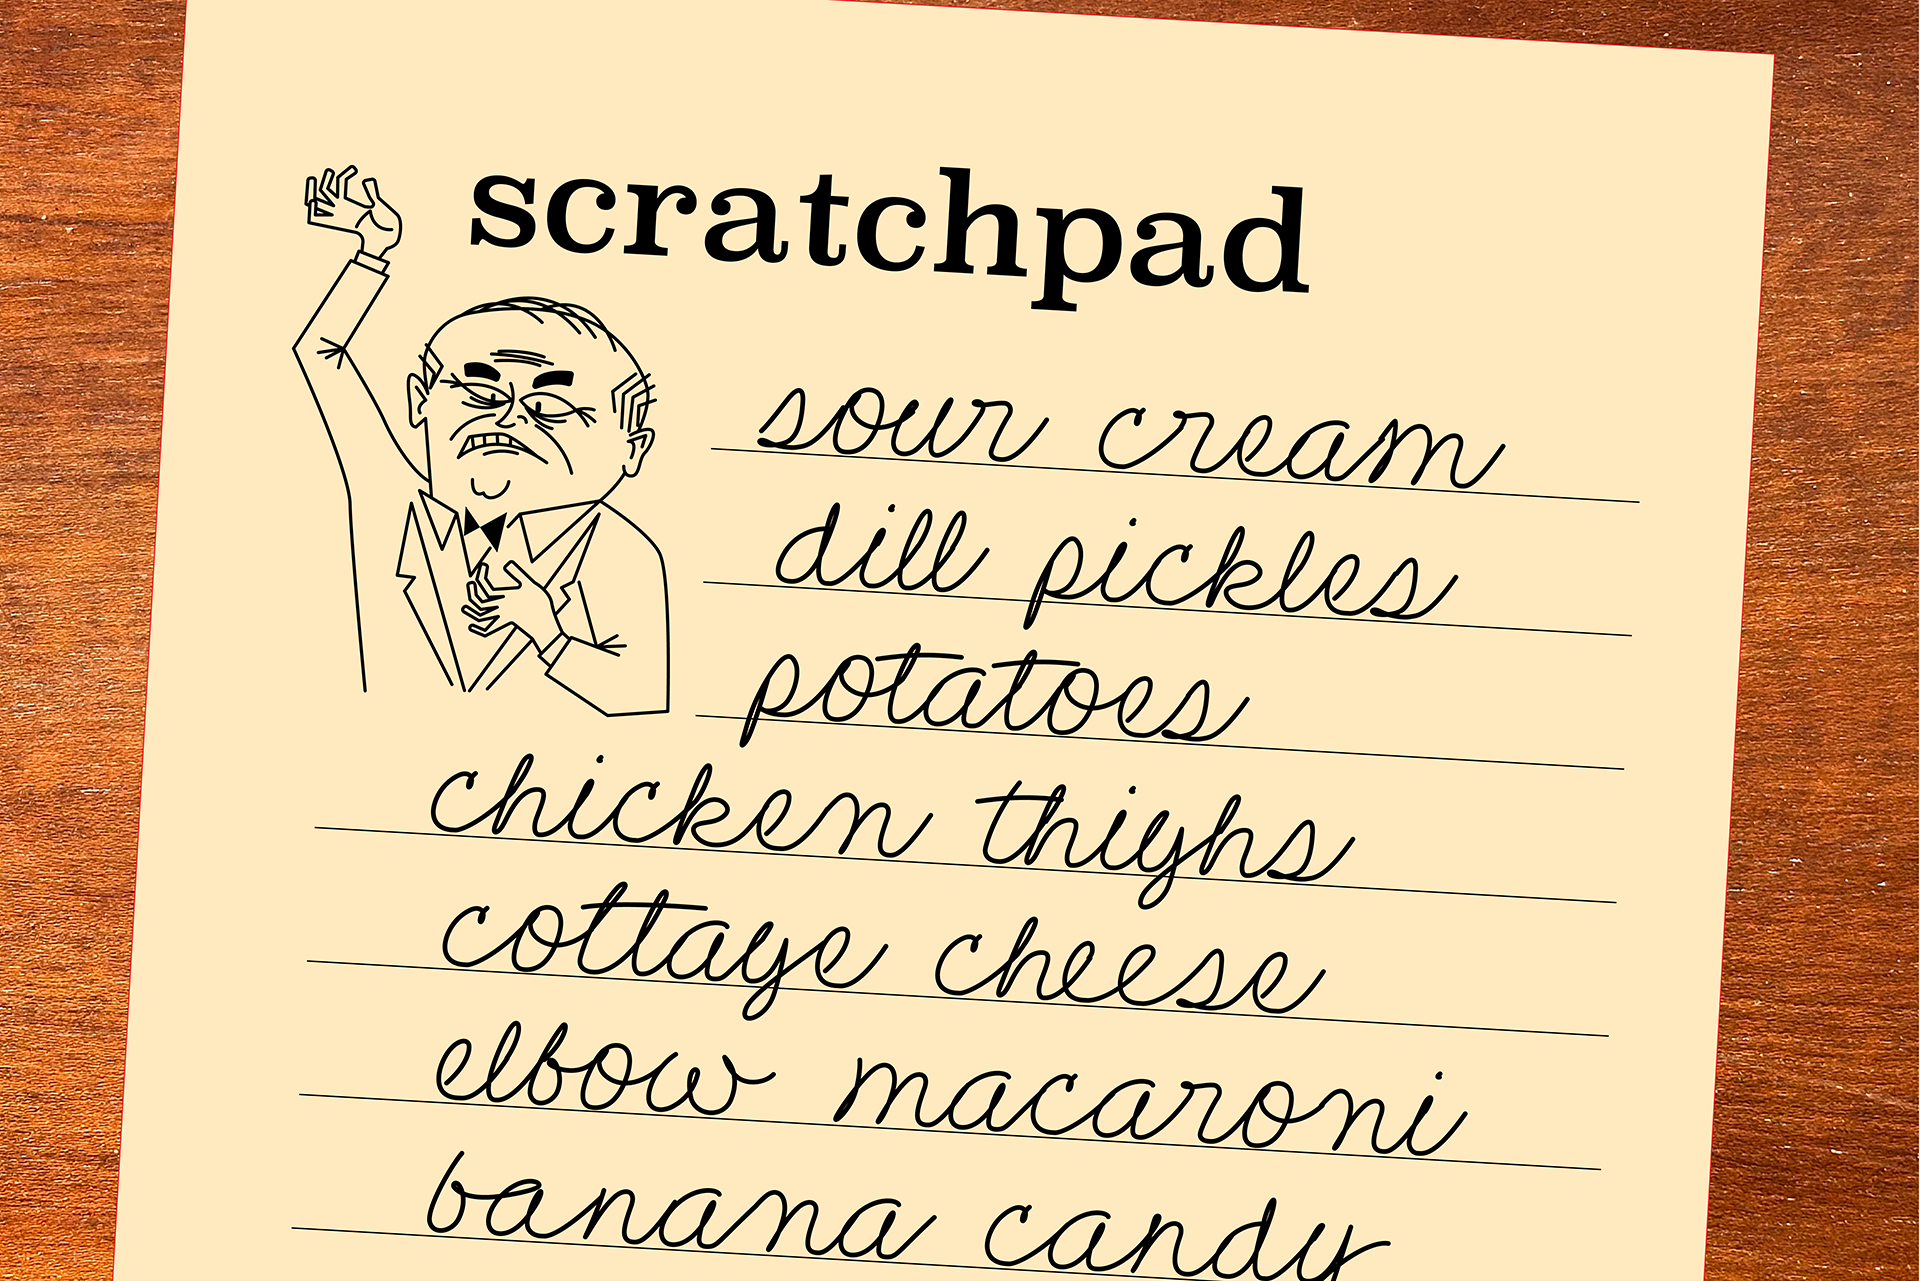 scratchpad
sour cream
dill pickles
potatoes
chicken thighs
cottage cheese
elbow macaroni
banana candy